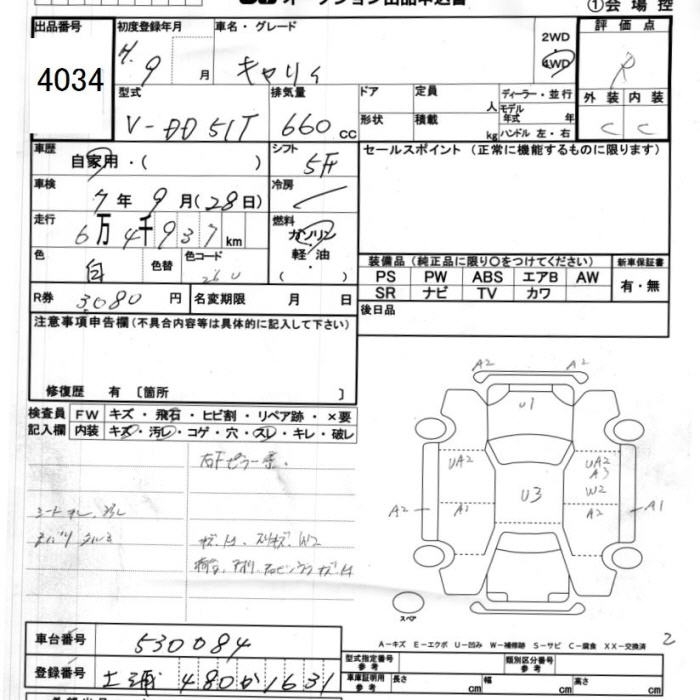 オークション出品申込書
①会場控
出品番号
4034
初度登録年月
H. 9 月
車名・グレード
キャリィ
2WD
4WD
評価点
R
型式
V-DD51T
排気量
660 cc
ドア
定員
人
形状
積載
kg
ディーラー・並行
モデル年式 年
ハンドル 左・右
外装 内装
C C
車歴
自家用・( )
シフト
5F
セールスポイント (正常に機能するものに限ります)
車検
7年 9月(28日)
冷房
走行
6万4千937km
燃料
ガソリン・軽油
( )
色
白
色替
色コード
26U
R券
3080 円
名変期限 月 日
装備品 (純正品に限り〇をつけてください)
新車保証書
PS PW ABS エアB AW
SR ナビ TV カワ
有・無
後日品
注意事項申告欄 (不具合内容等は具体的に記入して下さい)
修復歴 有 〔箇所 〕
検査員記入欄
FW キズ・飛石・ヒビ割・リペア跡・×要
内装 キズ・汚レ・コゲ・穴・スレ・キレ・破レ
A2 A2
U1
UA2
UA2
A3
W2
U3
A2
A2
A1
スペア
A-キズ E-エクボ U-凹み W-補修跡 S-サビ C-腐食 XX-交換済
2
車台番号
530084
登録番号
土浦 480か1631
型式指定番号 参考
類別区分番号 参考
車庫証明用 参考
長さ cm
幅 cm
高さ cm